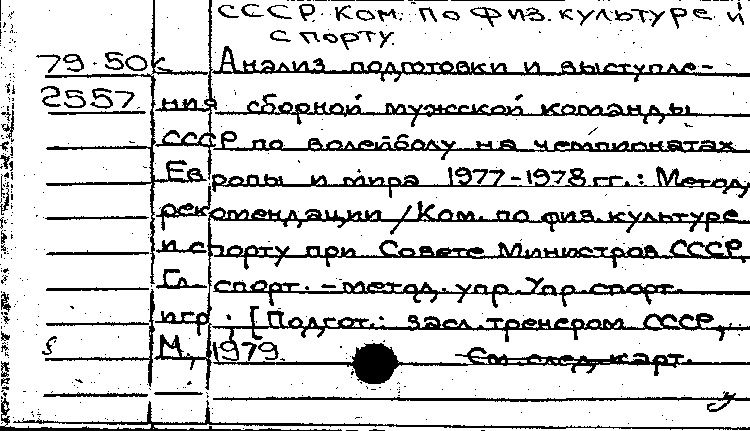 СССР. Ком. по физ. культуре и
спорту.
79.50к Анализ подготовки и выступле-
2557 ния сборной мужской команды
СССР по волейболу на чемпионатах
Европы и мира 1977-1978 гг.: Метод.
рекомендации / Ком. по физ. культуре
и спорту при Совете Министров СССР,
Гл. спорт.-метод. упр. Упр. спорт.
игр ; [Подгот.: засл. тренером СССР,
М., 1979 См. след. карт.